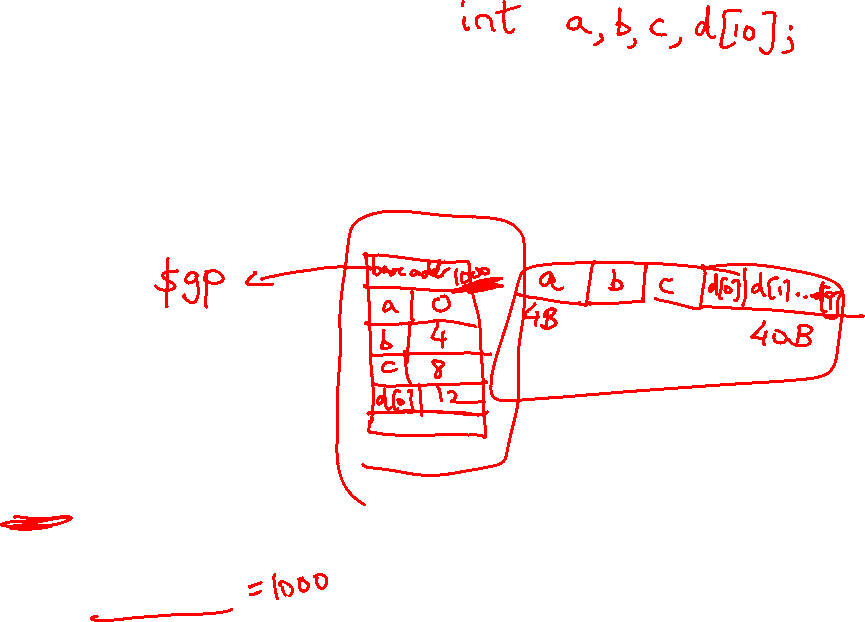 int a, b, c, d[10];
$gp
base addr 1000
a 0
b 4
c 8
d[0] 12
a b c d[0] d[1]...
4B 40B
=1000